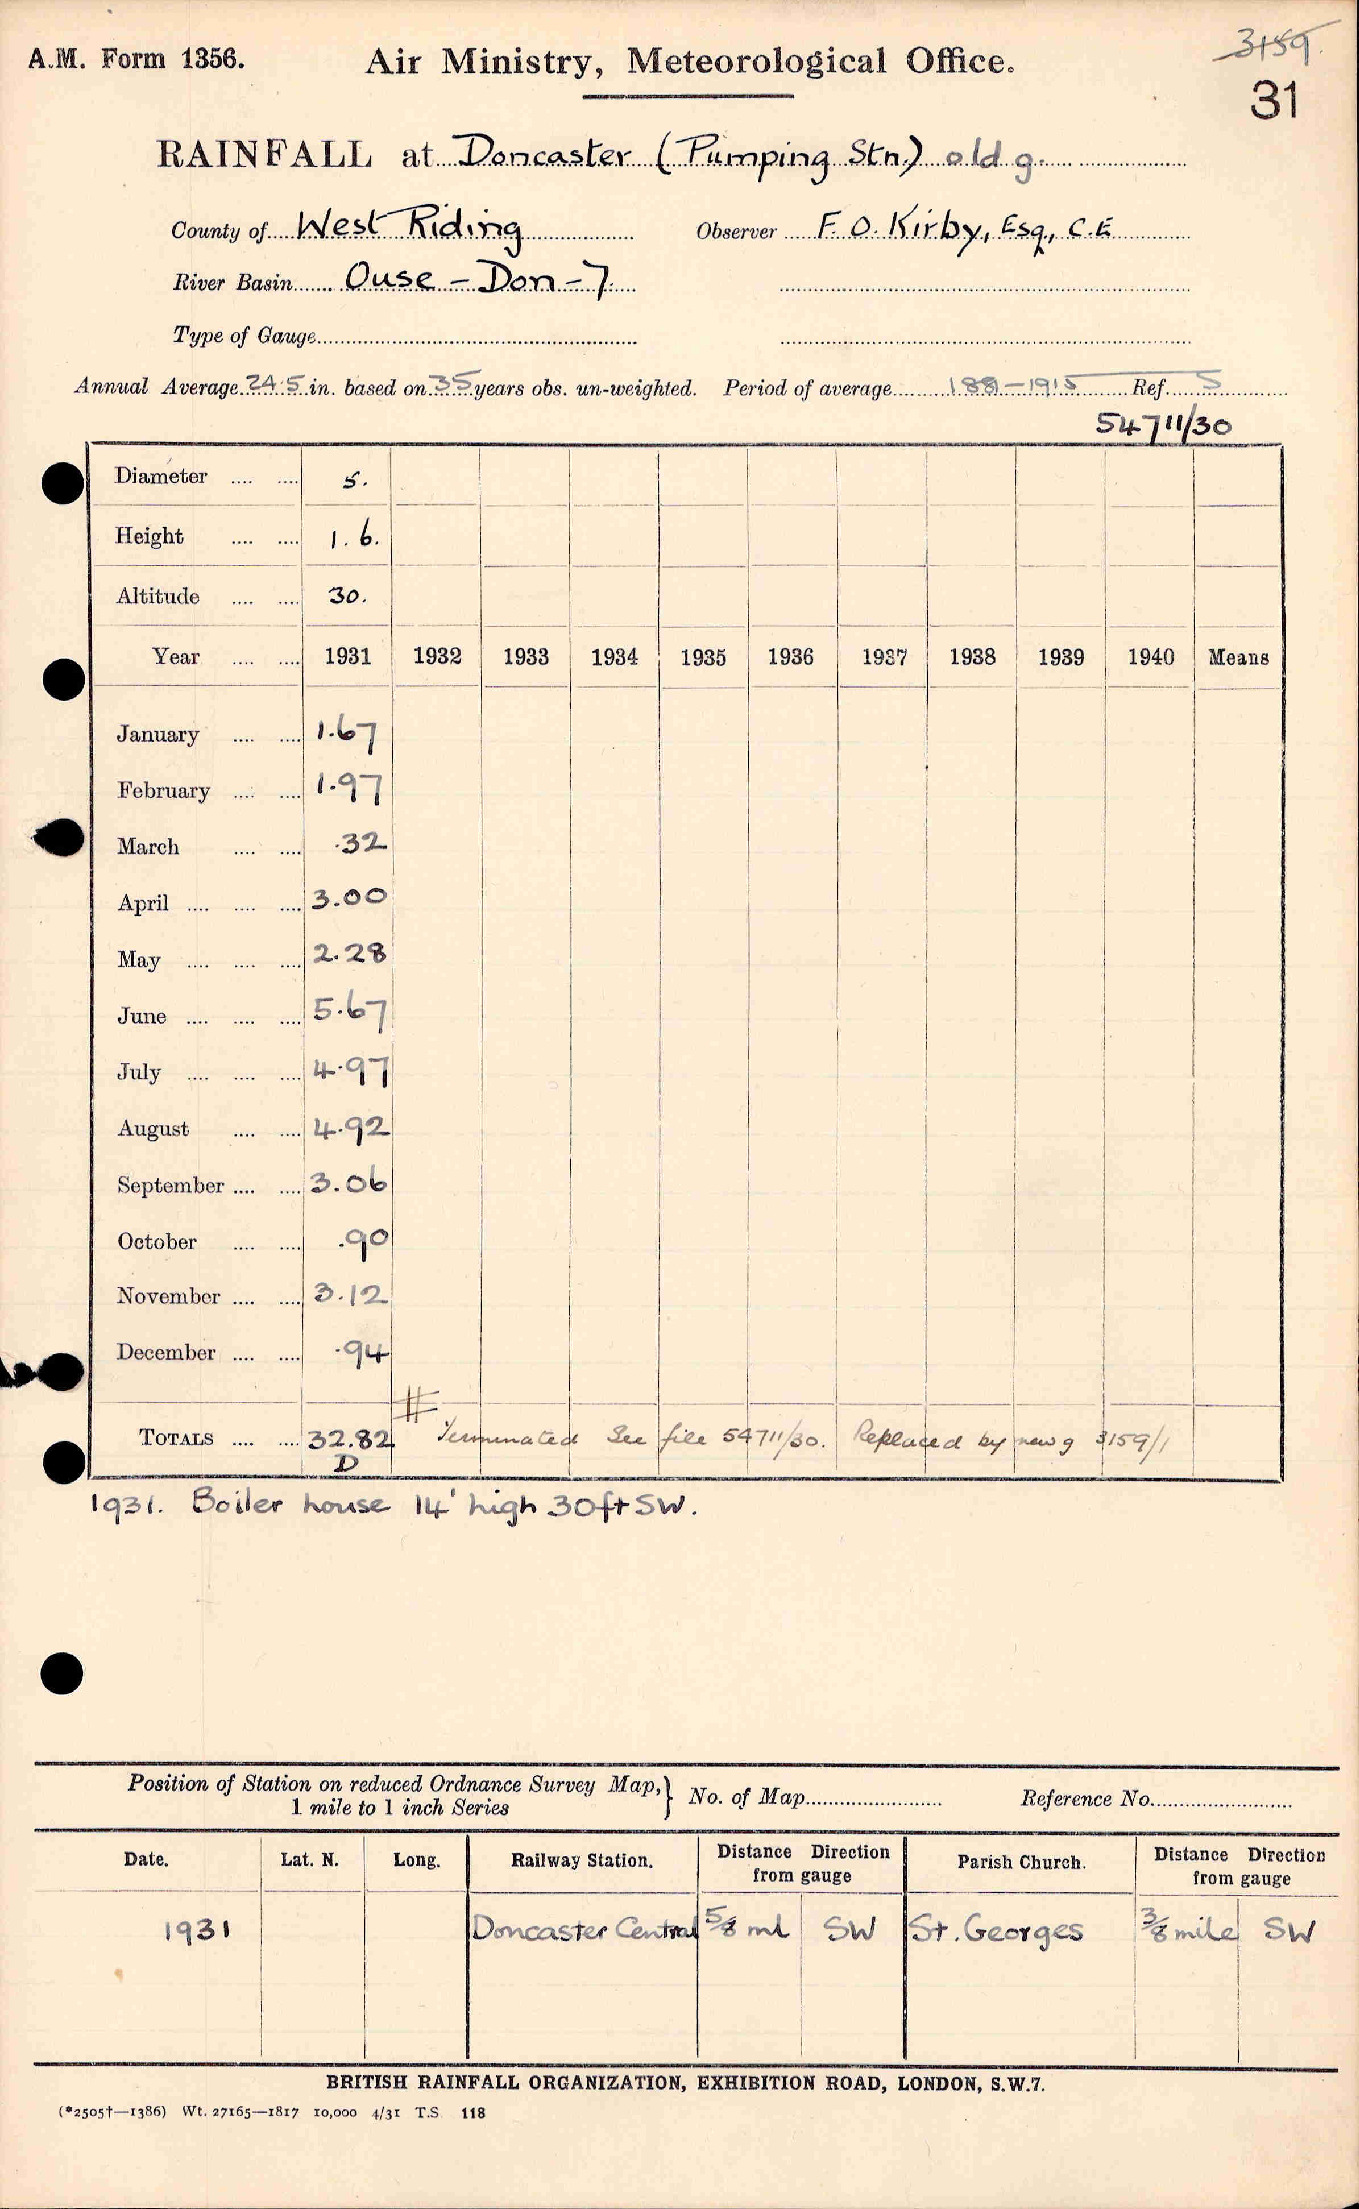 A.M. Form 1356.
Air Ministry, Meteorological Office.
3159
31
RAINFALL at Doncaster (Pumping Stn.) old g.
County of West Riding Observer F. O. Kirby, Esq., C.E
River Basin Ouse - Don - 7.
Type of Gauge
Annual Average 24.5 in. based on 35 years obs. un-weighted. Period of average 1881-1915 Ref. 5
54711/30
Diameter .... .... 5.
Height .... .... 1. 6.
Altitude .... .... 30.
Year .... .... 1931 1932 1933 1934 1935 1936 1937 1938 1939 1940 Means
January .... .... 1.67
February .... .... 1.97
March .... .... .32
April .... .... .... 3.00
May .... .... .... 2.28
June .... .... .... 5.67
July .... .... .... 4.97
August .... .... 4.92
September .... .... 3.06
October .... .... .90
November .... .... 3.12
December .... .... .94
TOTALS .... .... 32.82 # Terminated See file 54711/30. Replaced by new g 3159/1
D
1931. Boiler house 14' high 30ft SW.
Position of Station on reduced Ordnance Survey Map,
1 mile to 1 inch Series } No. of Map Reference No.
Date. Lat. N. Long. Railway Station. Distance Direction from gauge Parish Church. Distance Direction from gauge
1931 Doncaster Central 5/8 ml SW St. Georges 3/8 mile SW
BRITISH RAINFALL ORGANIZATION, EXHIBITION ROAD, LONDON, S.W.7.
(*2505†—1386) Wt. 27165—1817 10,000 4/31 T.S. 118